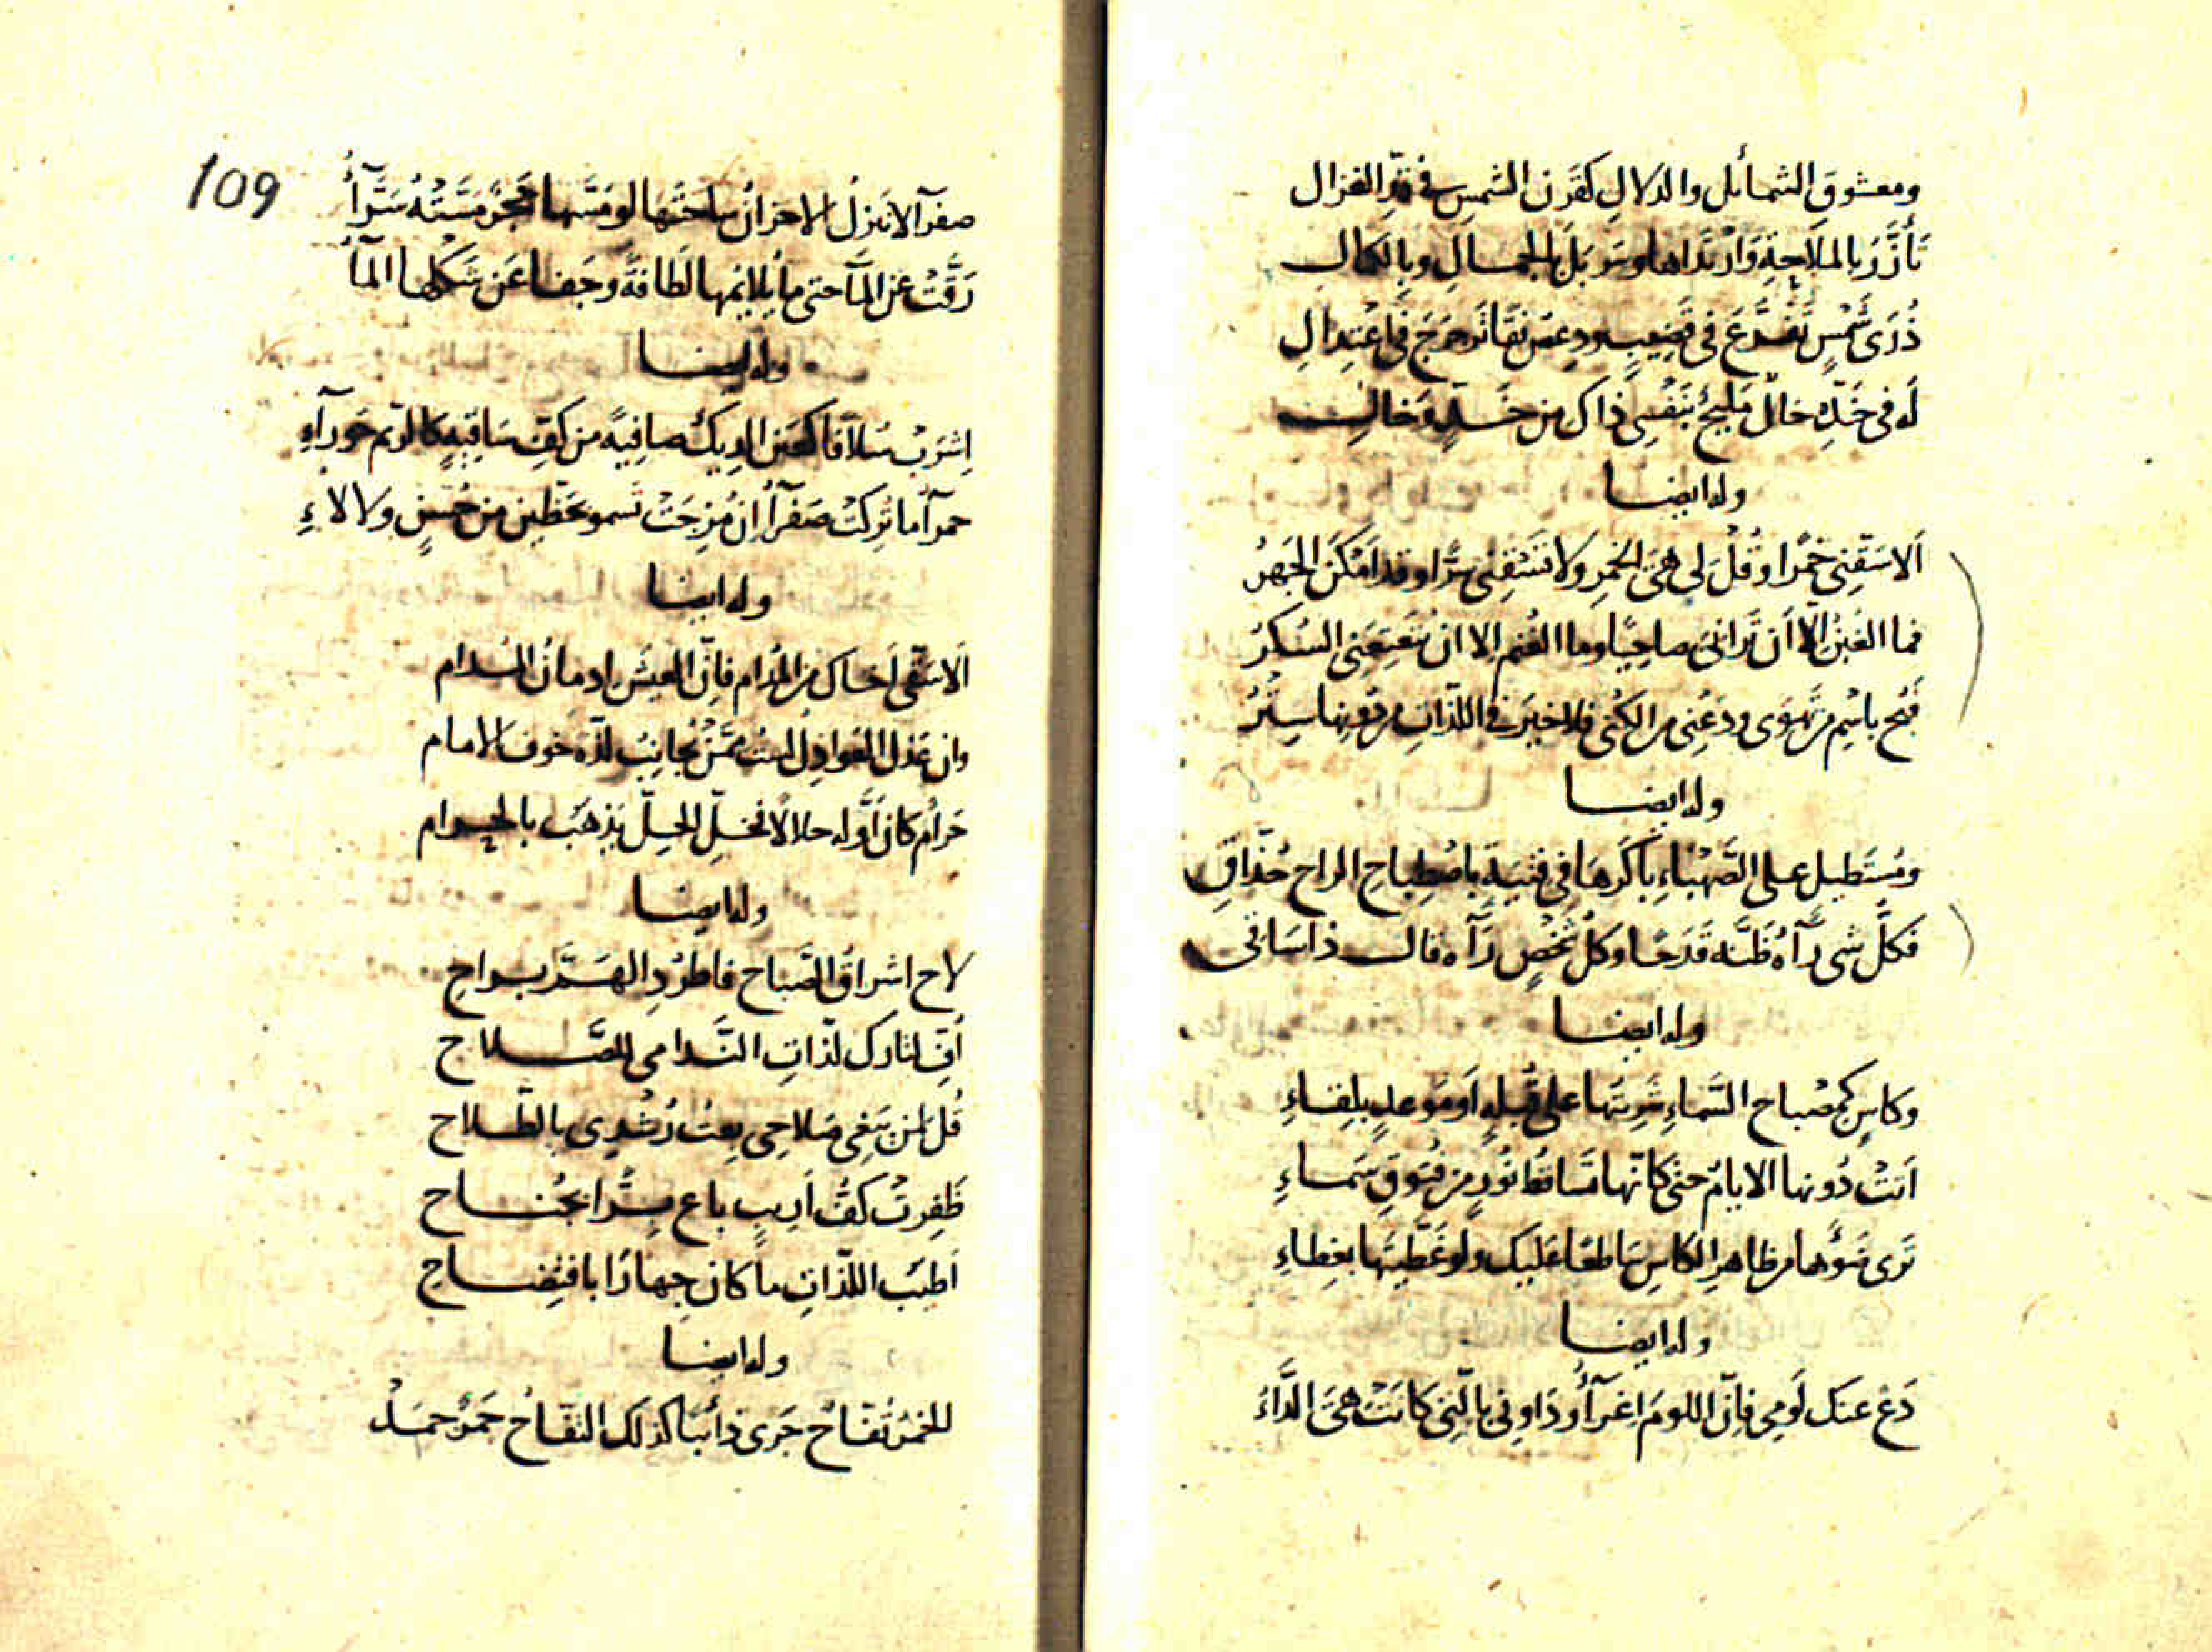 ومعشوق الشمائل والدلال كقرن الشمس في قد الغزال
تأزر بالملاحة وارتداها وسربل بالجمال وبالكمال
ذرى شمس تفرع في قضيب ودعص نقا ترجرج في اعتدال
له في خده خال مليح بنفسي ذاك من خد وخال
وله ايضا
ألا سقني خمرا وقل لي هي الخمر ولا تسقني سرا وقد امكن الجهر
فما الغبن الا أن تراني صاحيا وما الغنم الا ان يتعتعني السكر
فبح باسم من تهوى ودعني من الكنى فلا خير في اللذات من دونها ستر
وله ايضا
ومستطيل على الصهباء باكرها في فتية باصطباح الراح حذاق
فكل شي رآه ظنه قدحا وكل شخص رآه قال ذا ساقى
وله ايضا
وكاس كمصباح السماء شربتها على قبلة أو موعد بلقاء
اتت دونها الايام حتى كانها تساقط نور من فتوق سماء
ترى ضوءها من ظاهر الكاس ساطعا عليك ولو غطيتها بغطاء
وله ايضا
دع عنك لومي فان اللوم اغرآء وداوني بالتي كانت هي الداء
109
صفرآ لا تنزل الاحزان ساحتها لو مسها حجر مسته سرآء
رقت عن المآ حتى ما يلايمها لطافة وجفا عن شكلها المآ
وله ايضا
اشرب سلافا كعين الديك صافية من كف ساقية كالريم حورآء
حمرآ ما تركت صفرآ ان مزجت تسمو بحظين من حسن ولالاء
وله ايضا
ألا سقي اخاك من المدام فان العيش ادمان المدام
وان عذل العواذل لست ممن يجانب لذة خوف الامام
حرام كان أوله حلالا فخل الحل يذهب بالحرام
وله ايضا
لاح اشراق الصباح فاطرد الهم براح
أف لتارك لذات الندامى للصلاح
قل لمن يبغي صلاحى بعت رشدى بالطلاح
ظفرت كف أديب باع برا بجناح
اطيب اللذات ما كان جهارا بافتضاح
وله ايضا
للخمر تفاح جرى ذائبا كذلك التفاح خمر جمد